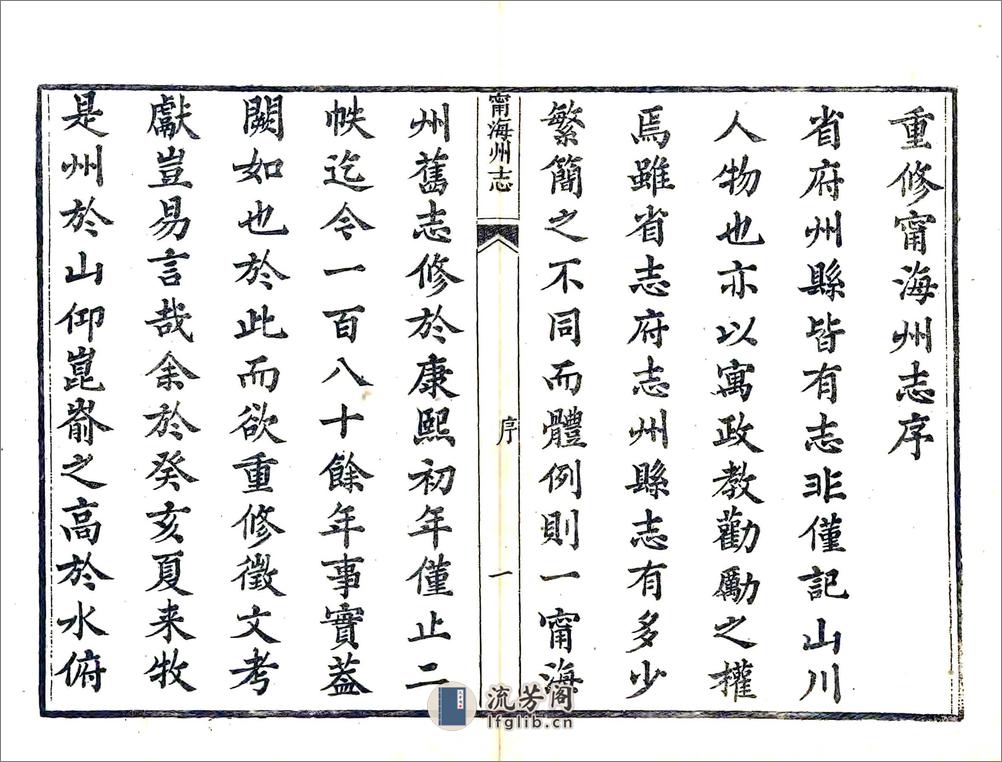 重修甯海州志序
省府州縣皆有志非僅記山川
人物也亦以寓政教勸勵之權
焉雖省志府志州縣志有多少
繁簡之不同而體例則一甯海
甯海州志
序
一
州舊志修於康熙初年僅止二
帙迄今一百八十餘年事實蓋
闕如也於此而欲重修徵文考
獻豈易言哉余於癸亥夏来牧
是州於山仰崑崙之高於水俯
流芳阁
lfglib.cn